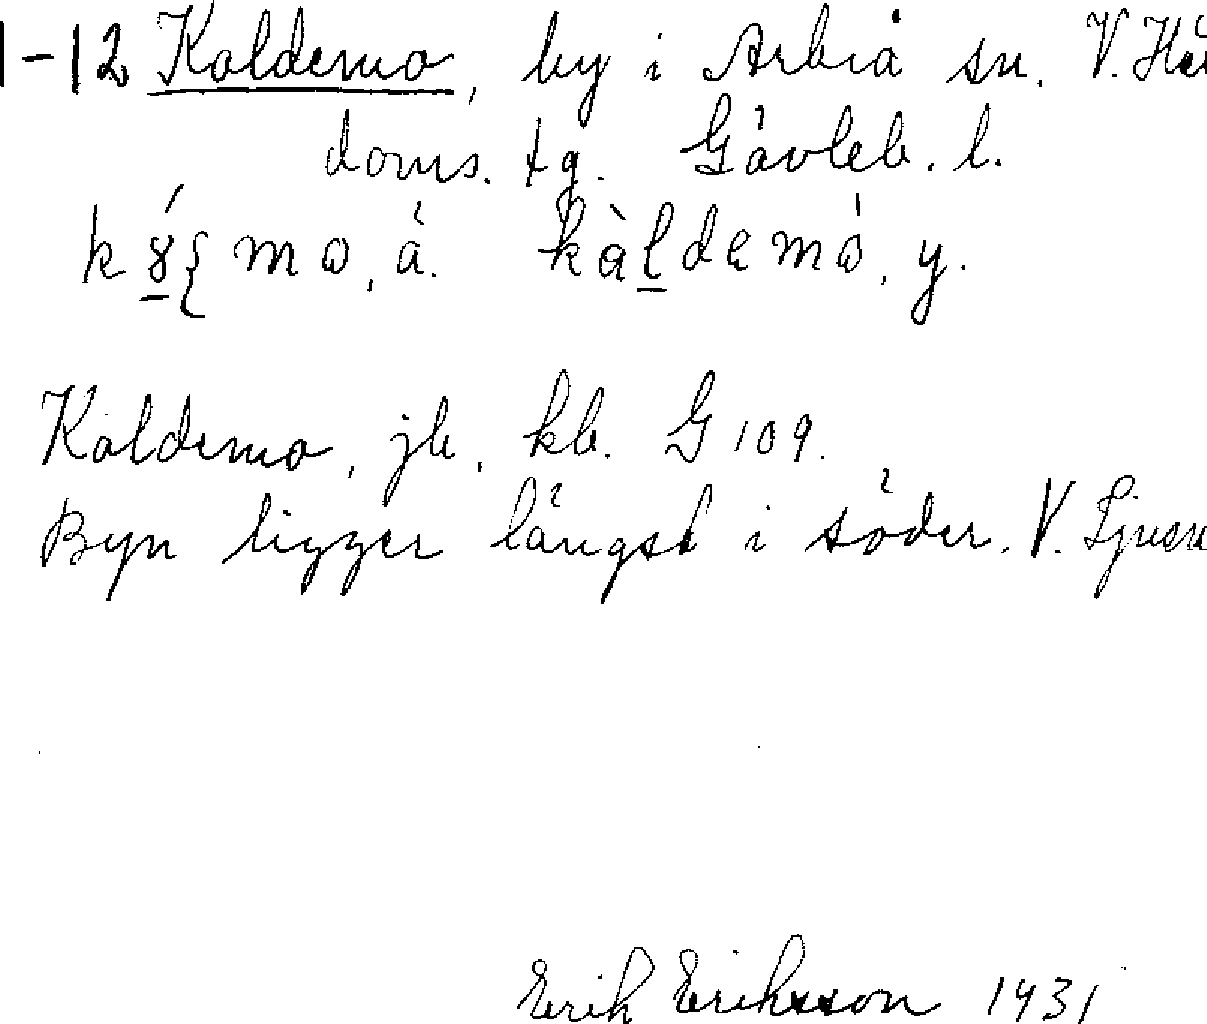 1-12 Koldemo, by i Arbrå sn. V. Häl
doms. tg. Gävleb. l.
mo, ä. kàldemó, y.
Koldemo, jb, kb. G 109.
Byn ligger längst i söder. V. Ljusn
Erik Eriksson 1931